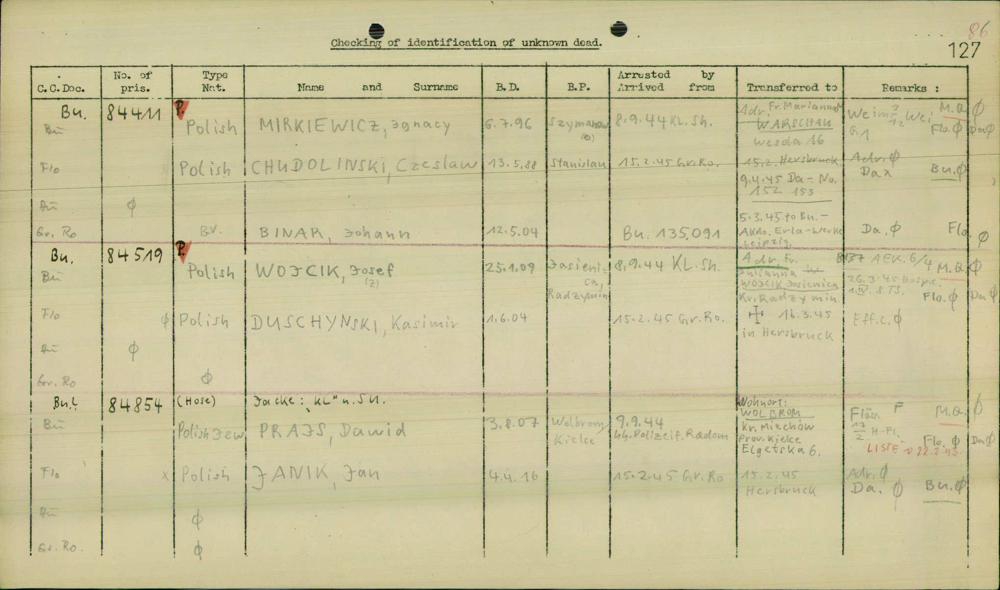 86
127
Checking of identification of unknown dead.
C.C.Doc. No. of pris. Type Nat. Name and Surname B.D. B.P. Arrested by Arrived from Transferred to Remarks :
Bu. 84411 P. Adr. Fr. Marianna Weim. Wei M.Q. ϕ
Bu Polish MIRKIEWICZ, Ignacy 6.7.96 Szymanow 8.9.44 KL. Sh. WARSCHAU Flo. ϕ Da ϕ
Wesda 16
Flo Polish CHUDOLINSKI, Czeslaw 13.5.88 Stanislau 15.2.45 Gr. Ro. 15.2. Hersbruck Adr. ϕ
9.4.45 Da - No. Da x Bu. ϕ
152 153
Au ϕ
Gr. Ro BV. BINAR, Johann 12.5.04 Bu. 135091 5.3.45 to Bu. - Da. ϕ Flo. ϕ
AKdo. Erla-Werke
Leipzig.
Bu. 84519 P. Adr. Fr. AEK. 6/4 M.Q. ϕ
Bu Polish WOJCIK, Josef 25.1.09 Jasienica, 8.9.44 KL. Sh. Julianna 26.3.45
(z) Radzymin WOJCIK Jasienica Flo. ϕ Da ϕ
Kr. Radzymin
Flo ϕ Polish DUSCHYNSKI, Kasimir 1.6.04 15.2.45 Gr. Ro. 16.3.45 Eff.c. ϕ
in Hersbruck
Au ϕ
Gr. Ro ϕ
Bu.? 84854 (Hose) Jacke: "KL" u. SU. Wohnort: M.Q. ϕ
WOLBROM
Bu Polish Jew PRAJS, Dawid 3.8.07 Wolbrom 9.9.44 Kr. Miechow Flo. ϕ Da ϕ
Kielce SS. Polizeif. Radom Prov. Kielce LISTE
Elgetska 6.
Flo x Polish JANIK, Jan 4.4.16 15.2.45 Gr. Ro 15.2.45 Adr. ϕ
Hersbruck Da. ϕ Bu. ϕ
Au ϕ
Gr. Ro. ϕ